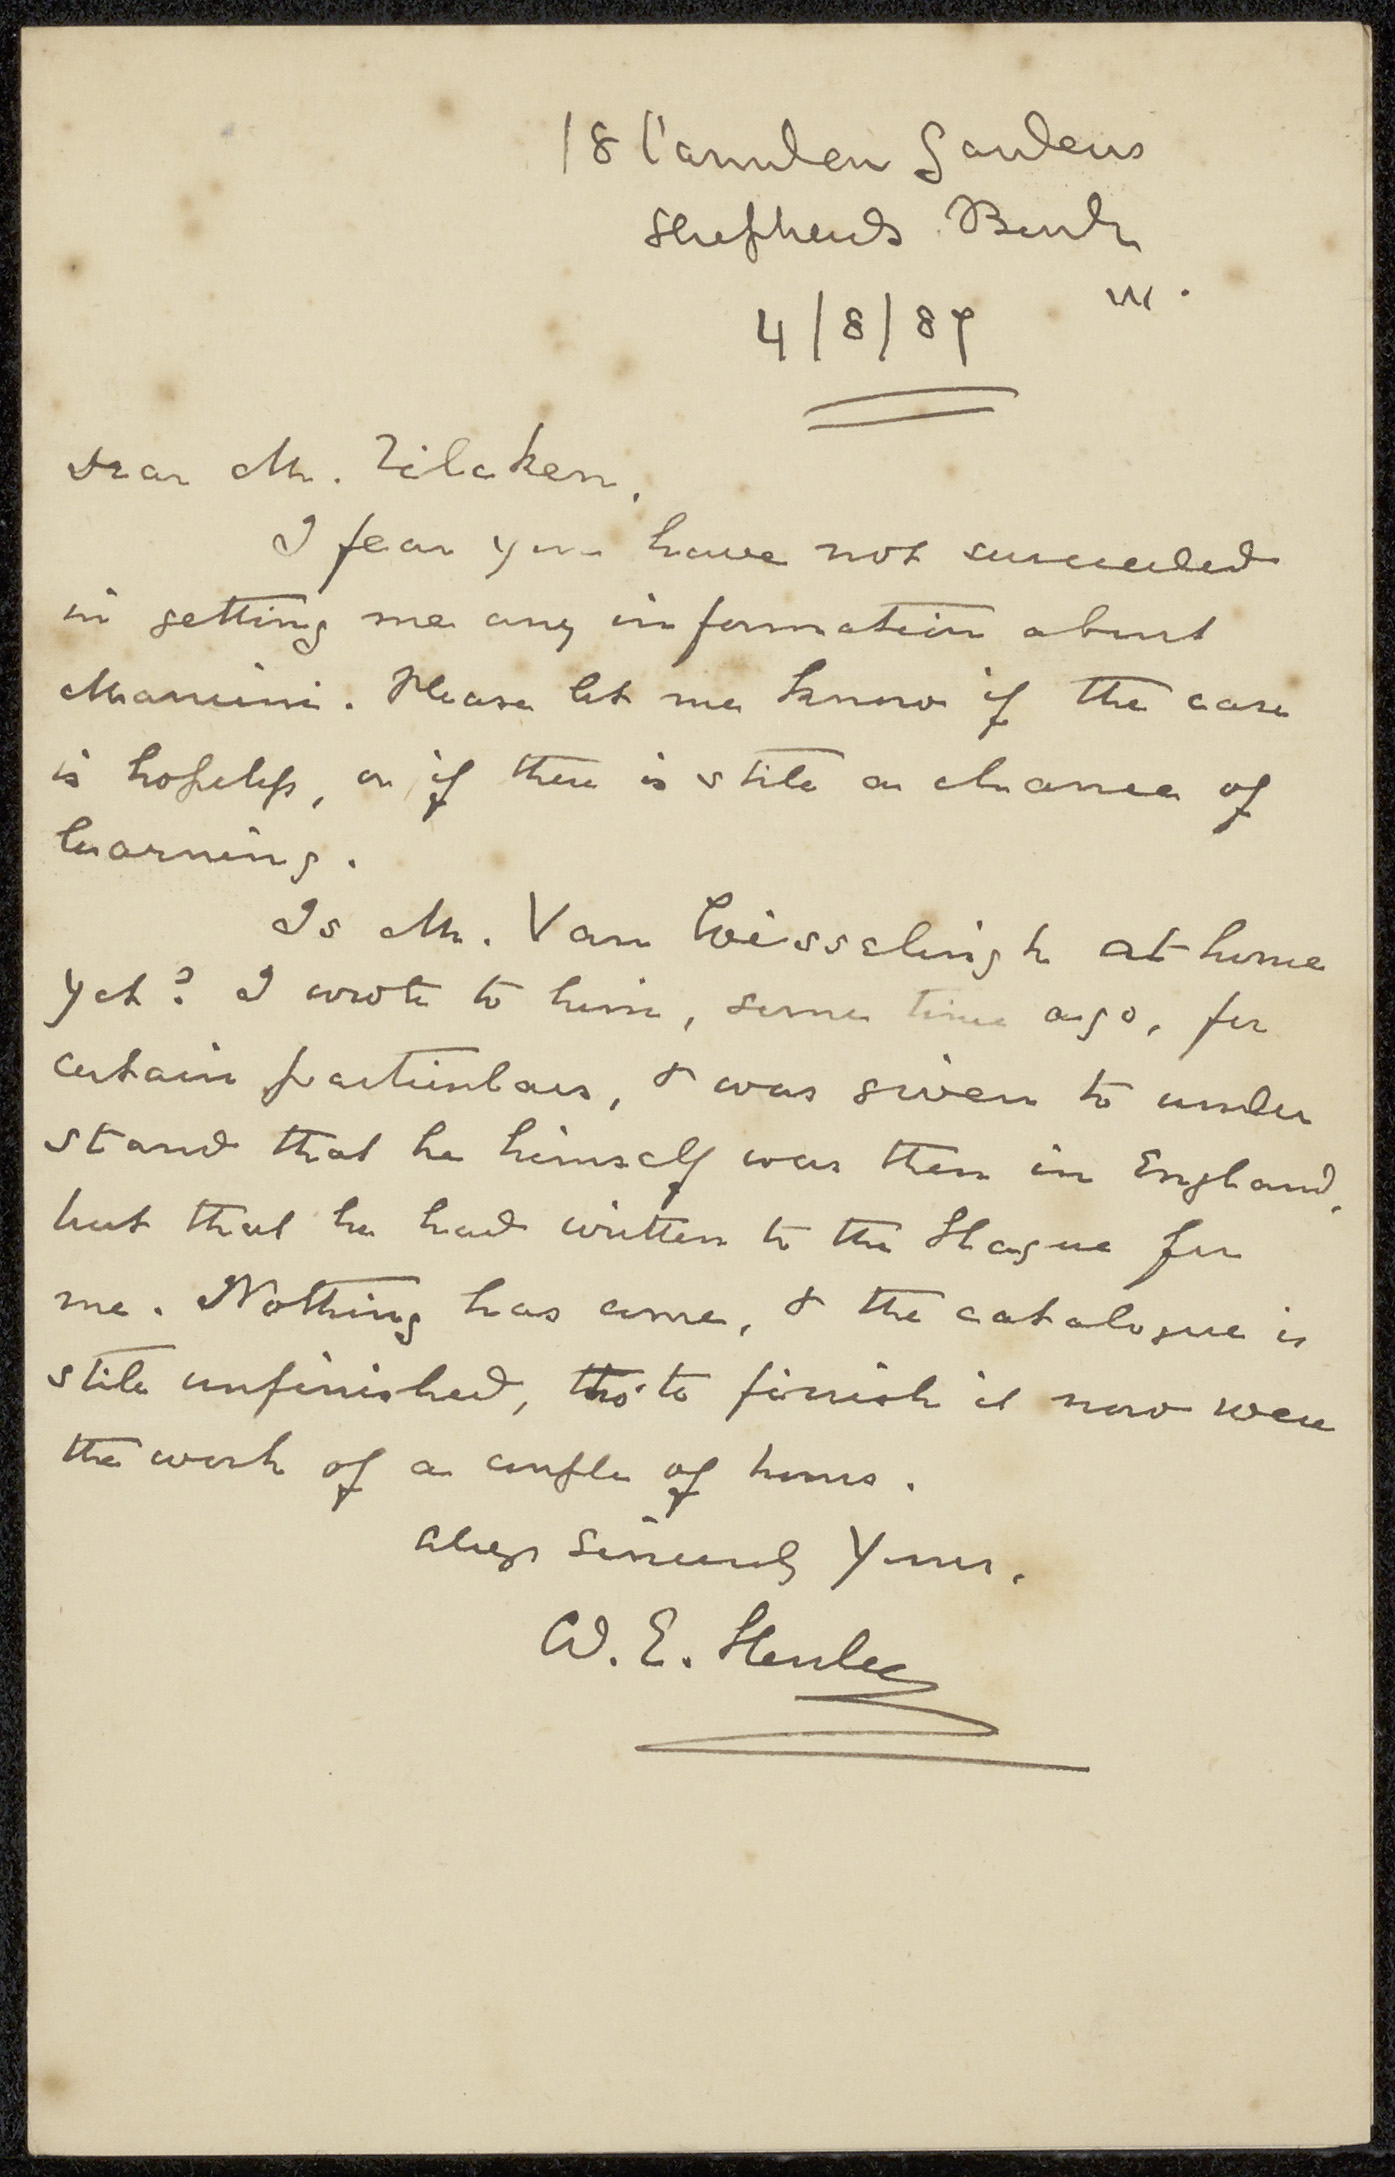 18 Camden Gardens
Shepherds Bush
W.
4/8/87
Dear Mr. Zilcken,
I fear you have not succeeded
in getting me any information about
Mancini. Please let me know if the case
is hopeless, or if there is still a chance of
learning.
Is Mr. Van Wisselingh at home
yet? I wrote to him, some time ago, for
certain particulars, & was given to under
stand that he himself was then in England,
but that he had written to the Hague for
me. Nothing has come, & the catalogue is
still unfinished, tho' to finish it now were
the work of a couple of hours.
Always sincerely yours.
W. E. Henley